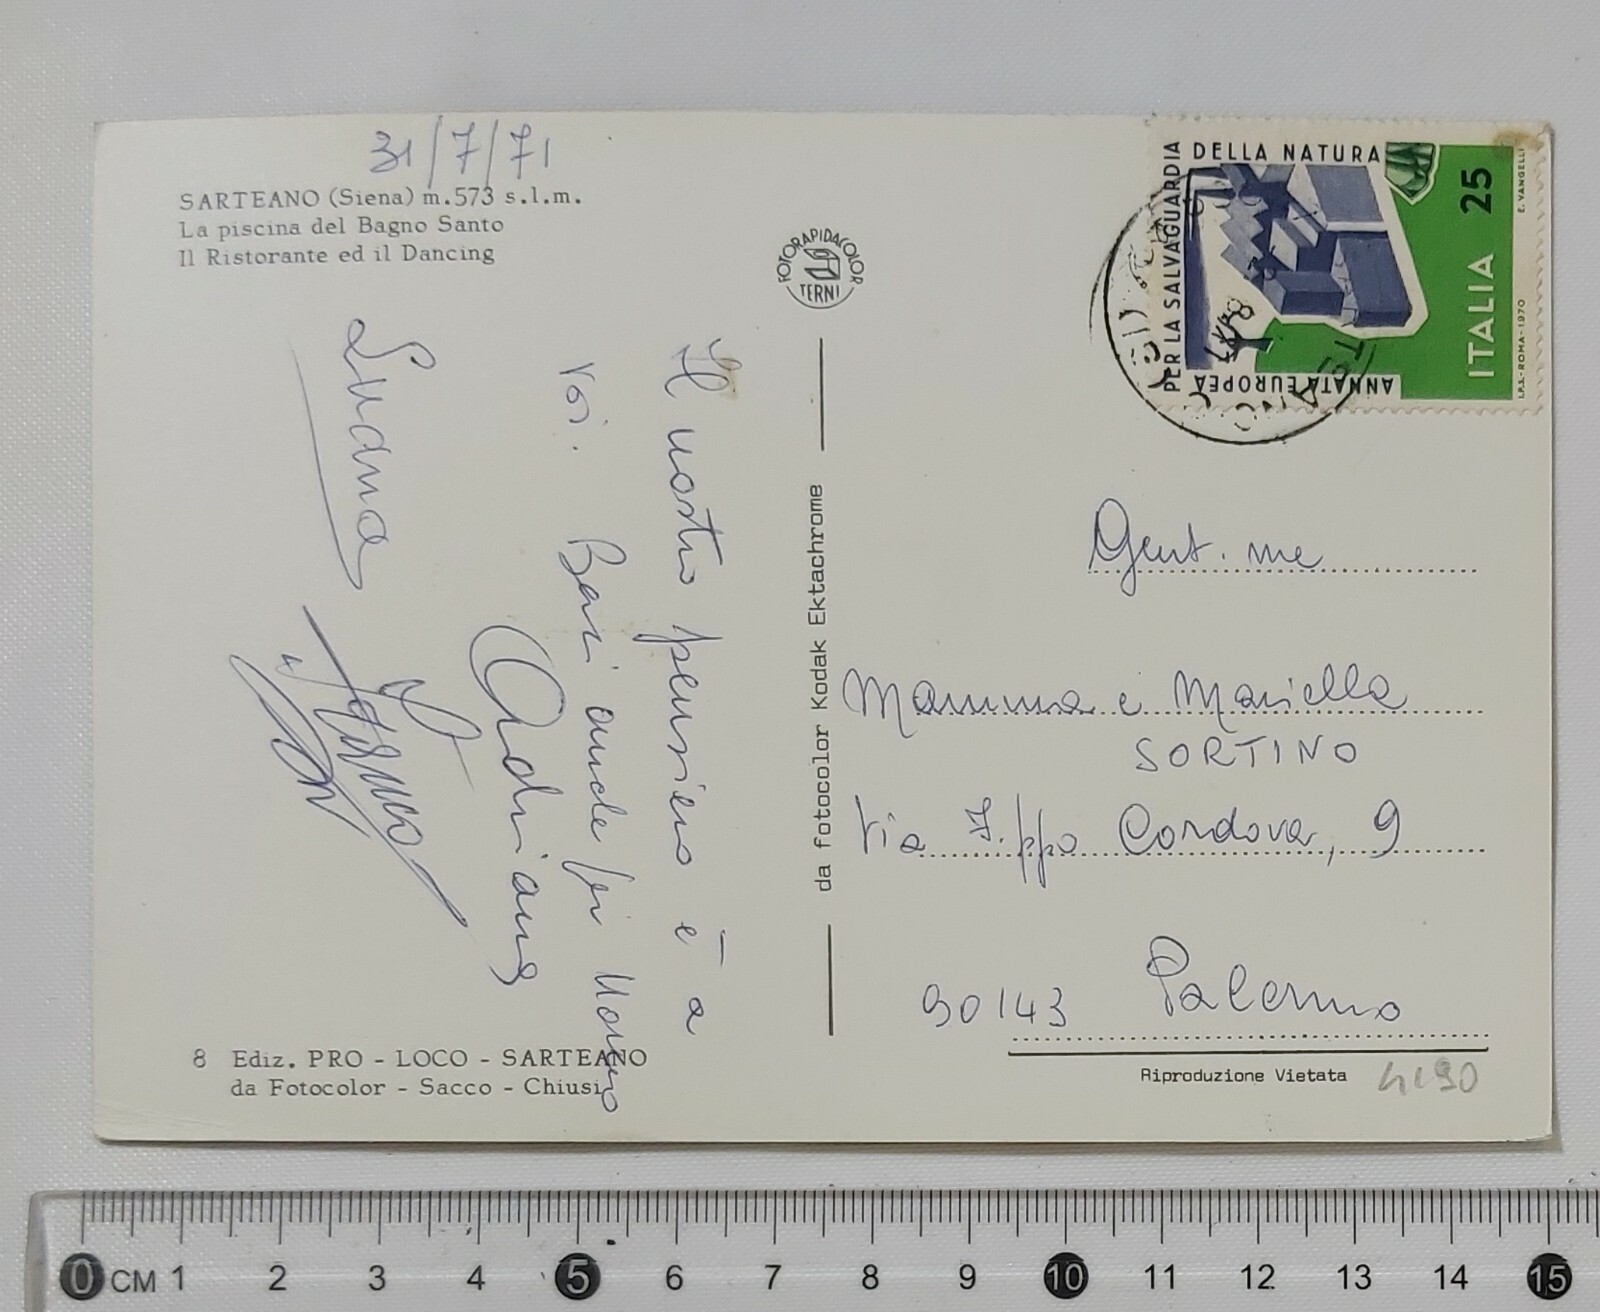 31/7/71
SARTEANO (Siena) m.573 s.l.m.
La piscina del Bagno Santo
Il Ristorante ed il Dancing
Il nostro pensiero è a
voi. Baci anche per Nonno
Adriana
Luana
8 Ediz. PRO - LOCO - SARTEANO
da Fotocolor - Sacco - Chiusi
FOTORAPIDACOLOR
TERNI
da fotocolor Kodak Ektachrome
PER LA SALVAGUARDIA
DELLA NATURA
ANNATA EUROPEA
ITALIA 25
E. VANGELLI
I.P.S.-ROMA-1970
Gent.me
Mamma e Mariella
SORTINO
Via F.ppo Cordova, 9
90143 Palermo
Riproduzione Vietata
4190
0 CM 1 2 3 4 5 6 7 8 9 10 11 12 13 14 15